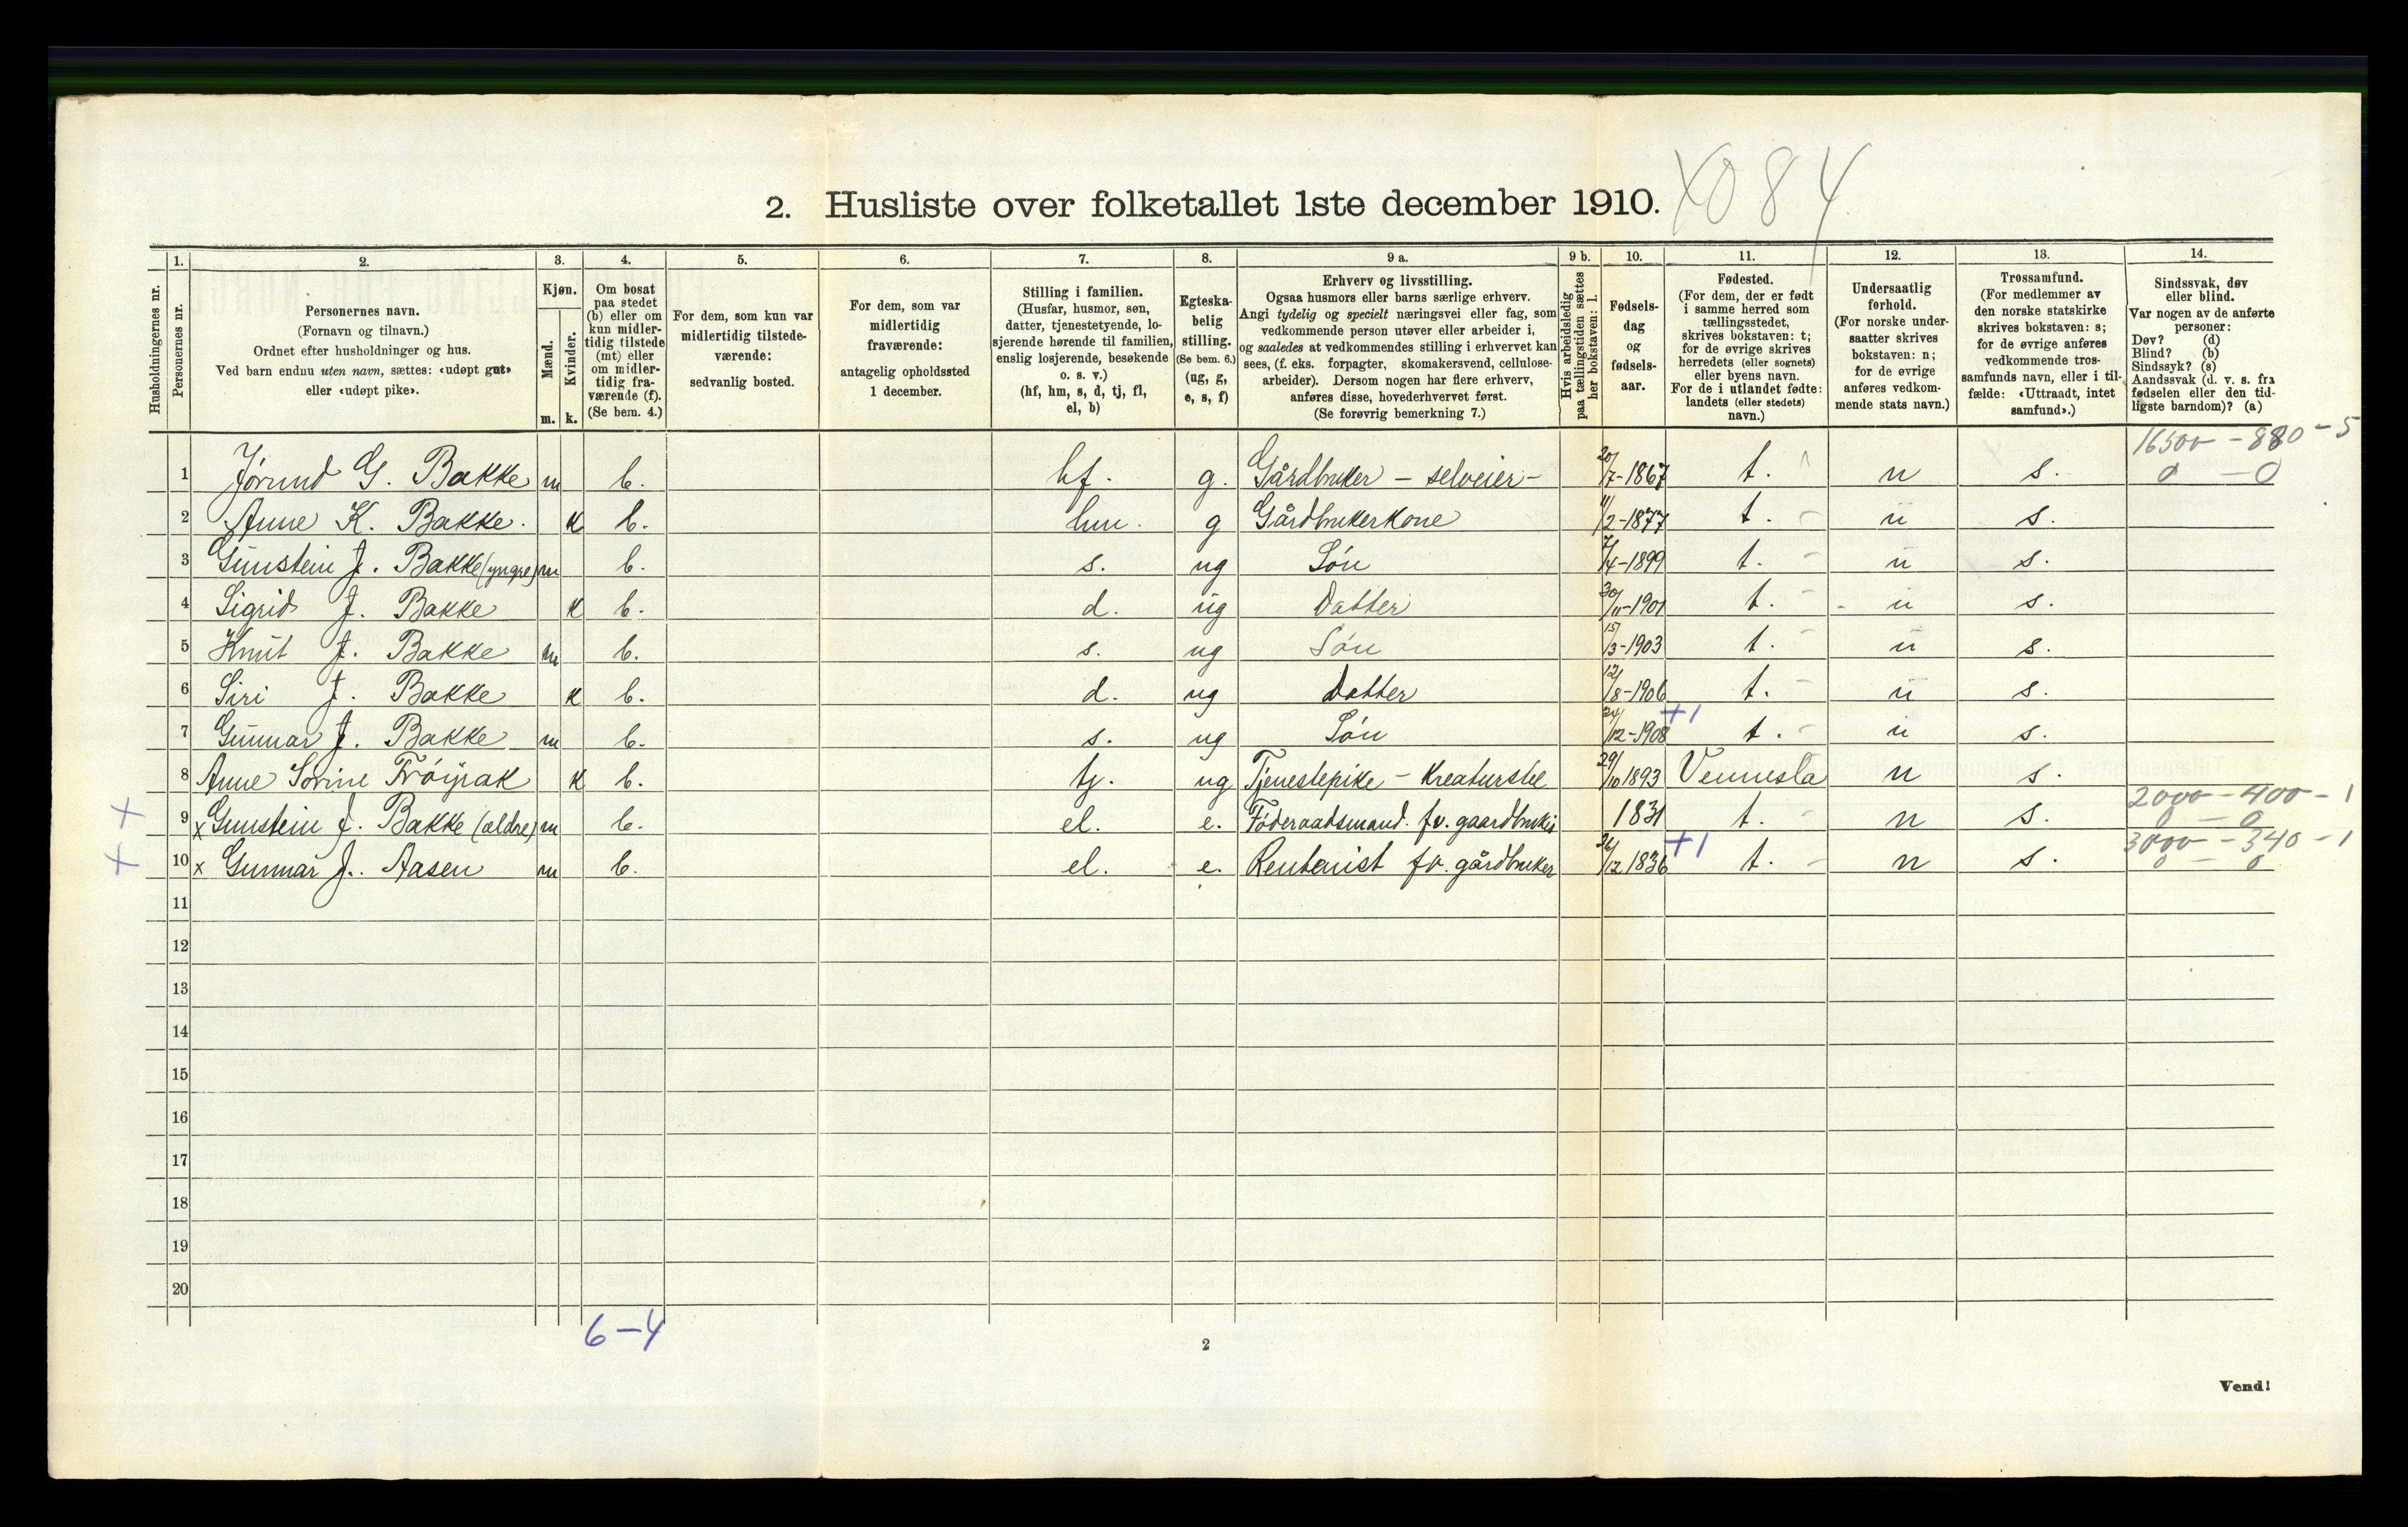 2. Husliste over folketallet 1ste december 1910.
X084
Husholdningernes nr.
1. Personernes nr.
2. Personernes navn.
(Fornavn og tilnavn.)
Ordnet efter husholdninger og hus.
Ved barn endnu uten navn, sættes: «udøpt gut»
eller «udøpt pike».
3. Kjøn.
Mænd. m.
Kvinder. k.
4. Om bosat
paa stedet
(b) eller om
kun midler-
tidig tilstede
(mt) eller
om midler-
tidig fra-
værende (f).
(Se bem. 4.)
5. For dem, som kun var
midlertidig tilstede-
værende:
sedvanlig bosted.
6. For dem, som var
midlertidig
fraværende:
antagelig opholdssted
1 december.
7. Stilling i familien.
(Husfar, husmor, søn,
datter, tjenestetyende, lo-
sjerende hørende til familien,
enslig losjerende, besøkende
o. s. v.)
(hf, hm, s, d, tj, fl,
el, b)
8. Egteska-
belig
stilling.
(Se bem. 6.)
(ug, g,
e, s, f)
9 a. Erhverv og livsstilling.
Ogsaa husmors eller barns særlige erhverv.
Angi tydelig og specielt næringsvei eller fag, som
vedkommende person utøver eller arbeider i,
og saaledes at vedkommendes stilling i erhvervet kan
sees, (f. eks. forpagter, skomakersvend, cellulose-
arbeider). Dersom nogen har flere erhverv,
anføres disse, hovederhvervet først.
(Se forøvrig bemerkning 7.)
9 b. Hvis arbeidsledig
paa tællingstiden sættes
her bokstaven: l.
10. Fødsels-
dag
og
fødsels-
aar.
11. Fødested.
(For dem, der er født
i samme herred som
tællingsstedet,
skrives bokstaven: t;
for de øvrige skrives
herredets (eller sognets)
eller byens navn.
For de i utlandet fødte:
landets (eller stedets)
navn.)
12. Undersaatlig
forhold.
(For norske under-
saatter skrives
bokstaven: n;
for de øvrige
anføres vedkom-
mende stats navn.)
13. Trossamfund.
(For medlemmer av
den norske statskirke
skrives bokstaven: s;
for de øvrige anføres
vedkommende tros-
samfunds navn, eller i til-
fælde: «Uttraadt, intet
samfund».)
14. Sindssvak, døv
eller blind.
Var nogen av de anførte
personer:
Døv? (d)
Blind? (b)
Sindssyk? (s)
Aandssvak (d. v. s. fra
fødselen eller den tid-
ligste barndom)? (a)
16500 - 880 - 5
1 Jórund G. Bakke m b. hf. g. Gårdbruker - selveier - 20/7-1867 t. n s. 0 - 0
2 Anne K. Bakke. k b. hm. g Gårdbrukerkone 11/2-1877 t. - n s.
3 Gunstein J. Bakke (yngre) m b. s. ug Són 7/4-1899 t. - n s.
4 Sigrid J. Bakke k b. d. ug Datter 30/11-1901 t. - n s.
5 Knut J. Bakke m b. s. ug Són 15/3-1903 t. - n s.
6 Siri J. Bakke k b. d. ug Datter 12/8-1906 t. - n s.
+1
7 Gunnar J. Bakke m b. s. ug Són 24/12-1908 t. - n s.
8 Anne Sorine Fróijrak k b. tj. ug Tjenestepike - Kreaturstel 29/10 1893 Vennesla n s.
2000 - 400 - 1
+ 9 x Gunstein J. Bakke (ældre) m b. el. e. Fóderaadsmand. fv. gaardbruker 1831 t. - n s. 0 - 0
+1 3000 - 340 - 1
+ 10 x Gunnar J. Aasen m b. el. e. Rentenist fv. gårdbruker 26/12 1836 t. - n s. 0 - 0
11
12
13
14
15
16
17
18
19
20
6-4
2
Vend!